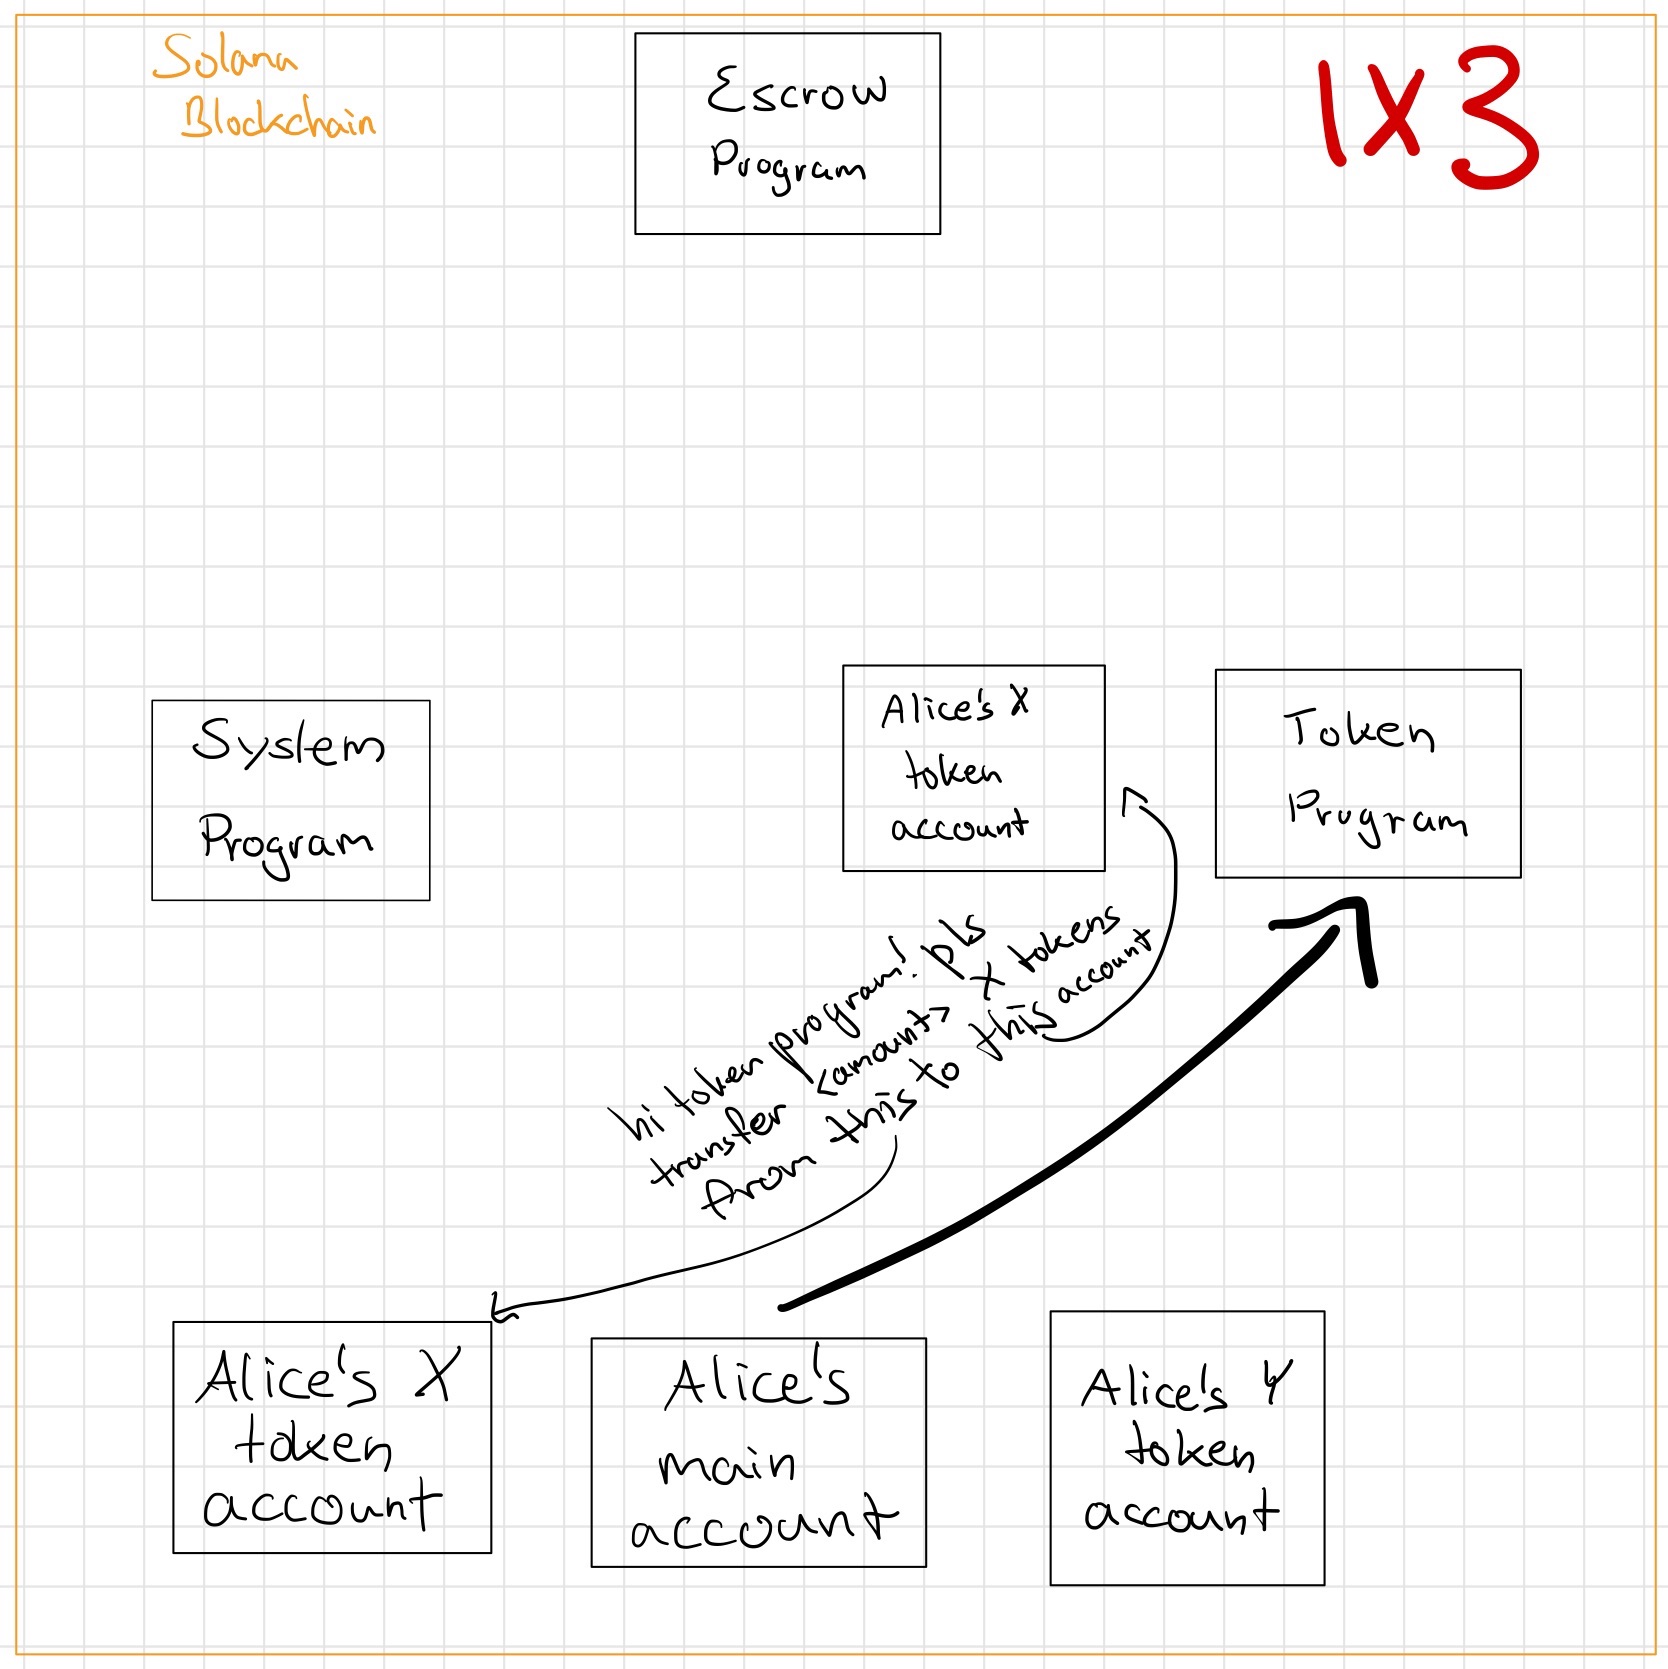 Solana
Blockchain
Escrow
Program
1X3
System
Program
Alice's X
token
account
Token
Program
hi token program! pls
transfer <amount> X tokens
from this to this account
Alice's X
token
account
Alice's
main
account
Alice's Y
token
account